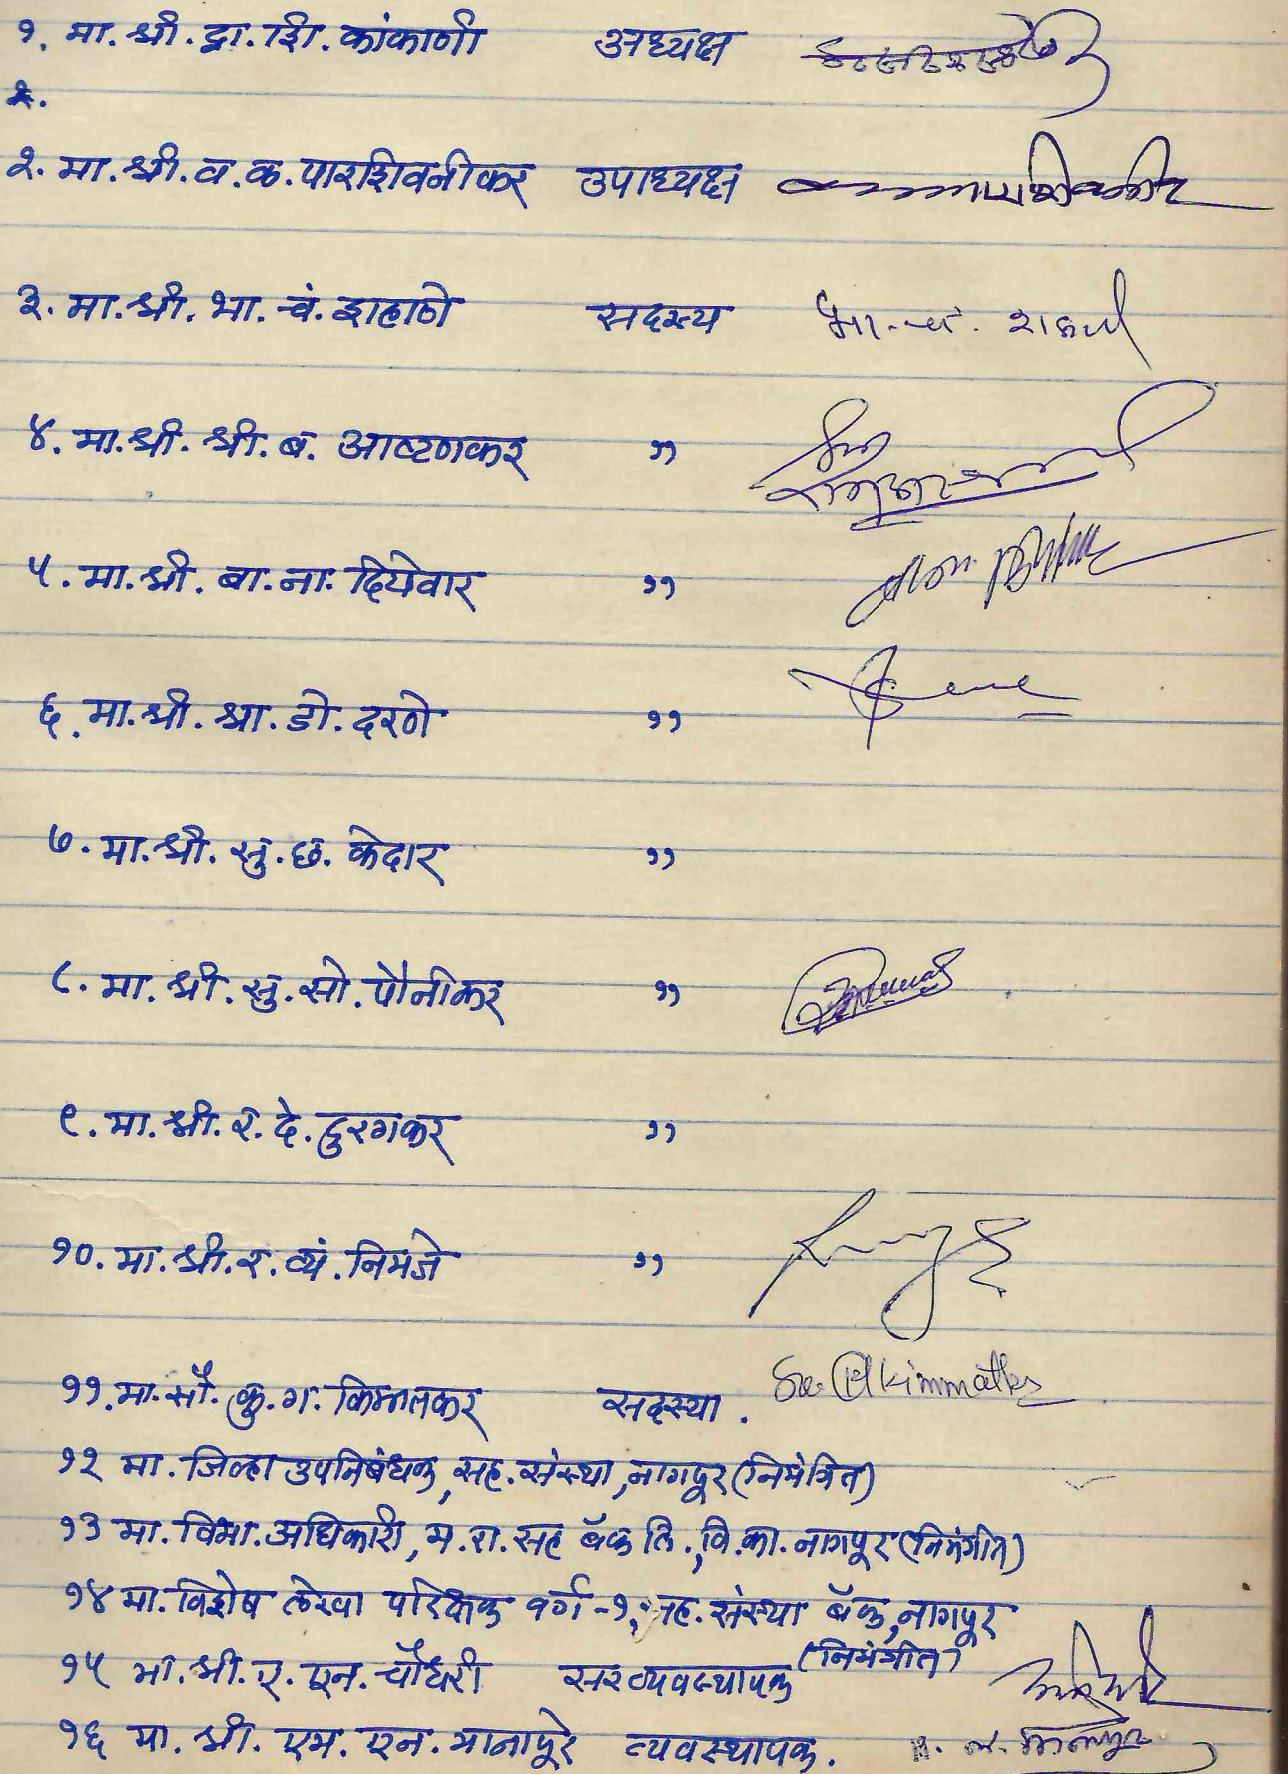 १. मा. श्री. द्वा. शि. कांकाणी अध्यक्ष
२.
२. मा. श्री. व. क. पारशिवनीकर उपाध्यक्ष
३. मा. श्री. भा. चं. शहाणे सदस्य भा. चं.
४. मा. श्री. श्री. ब. आष्टणकर "
५. मा. श्री. बा. ना. दियेवार "
६. मा. श्री. श्रा. डो. दरणे "
७. मा. श्री. सु. छ. केदार "
८. मा. श्री. सु. सो. पौनीकर "
९. मा. श्री. र. दे. दुरगकर "
१०. मा. श्री. र. व्यं. निमजे "
११. मा. सौ. कु. ग. किंमतकर सदस्या.
१२ मा. जिल्हा उपनिबंधक, सह. संस्था, नागपूर (निमंत्रित)
१३ मा. विभा. अधिकारी, म. रा. सह बँक लि., वि. का. नागपूर (निमंत्रीत)
१४ मा. विशेष लेखा परिक्षक वर्ग -१, सह. संस्था बँक, नागपूर
(निमंत्रीत)
१५ मा. श्री. ए. एन. चौधरी सरव्यवस्थापक
१६ मा. श्री. एम. एन. मानापूरे व्यवस्थापक.